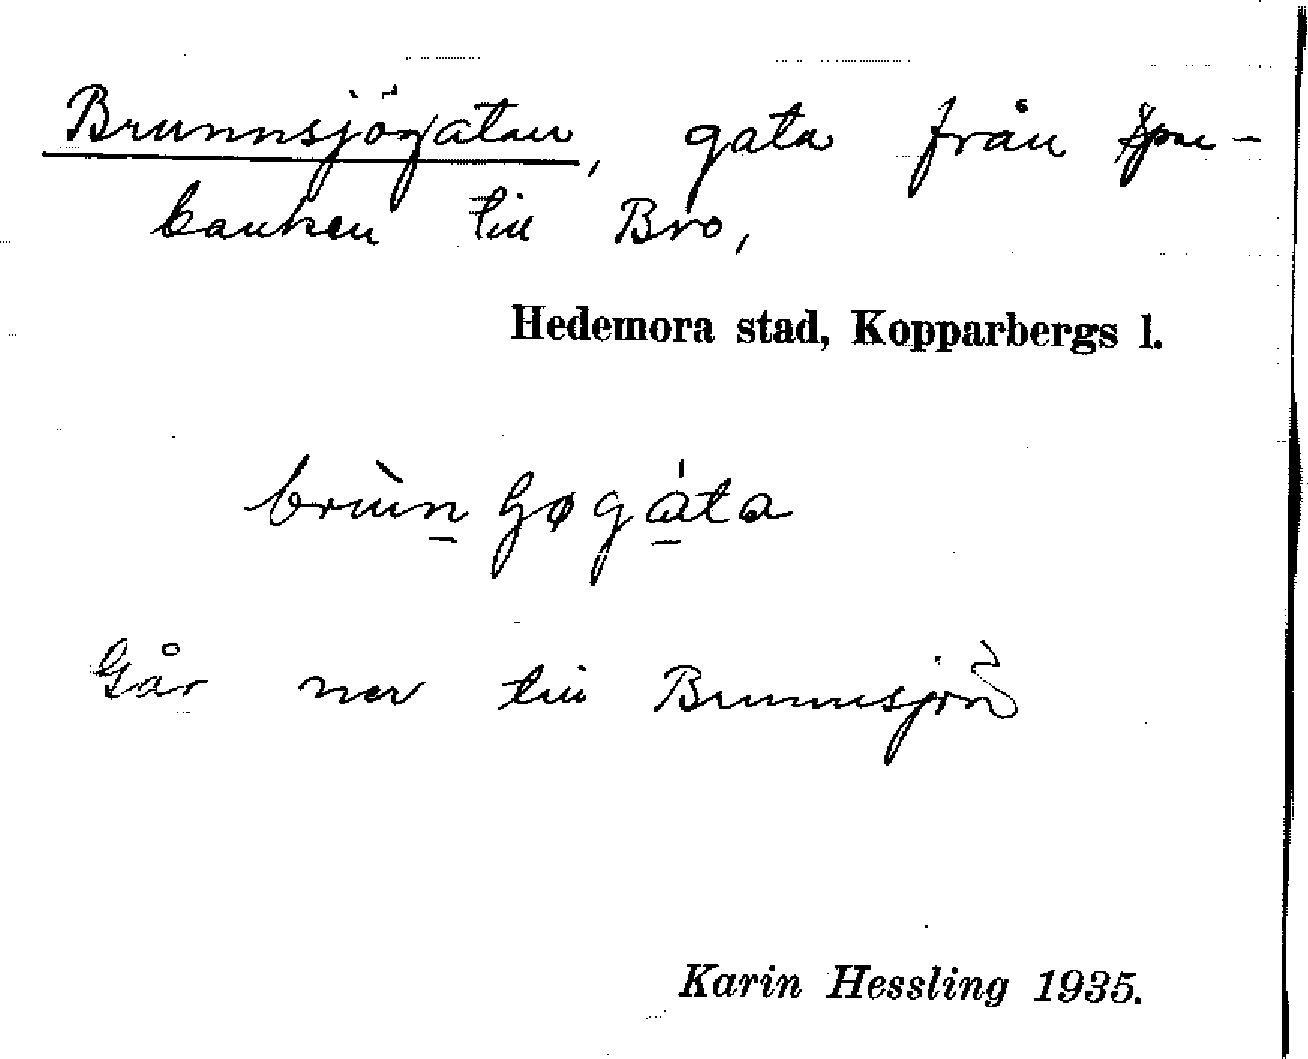 Brunnsjögatan, gata från Spar-
banken till Bro,
Hedemora stad, Kopparbergs l.
Går ner till Brunnsjön
Karin Hessling 1935.